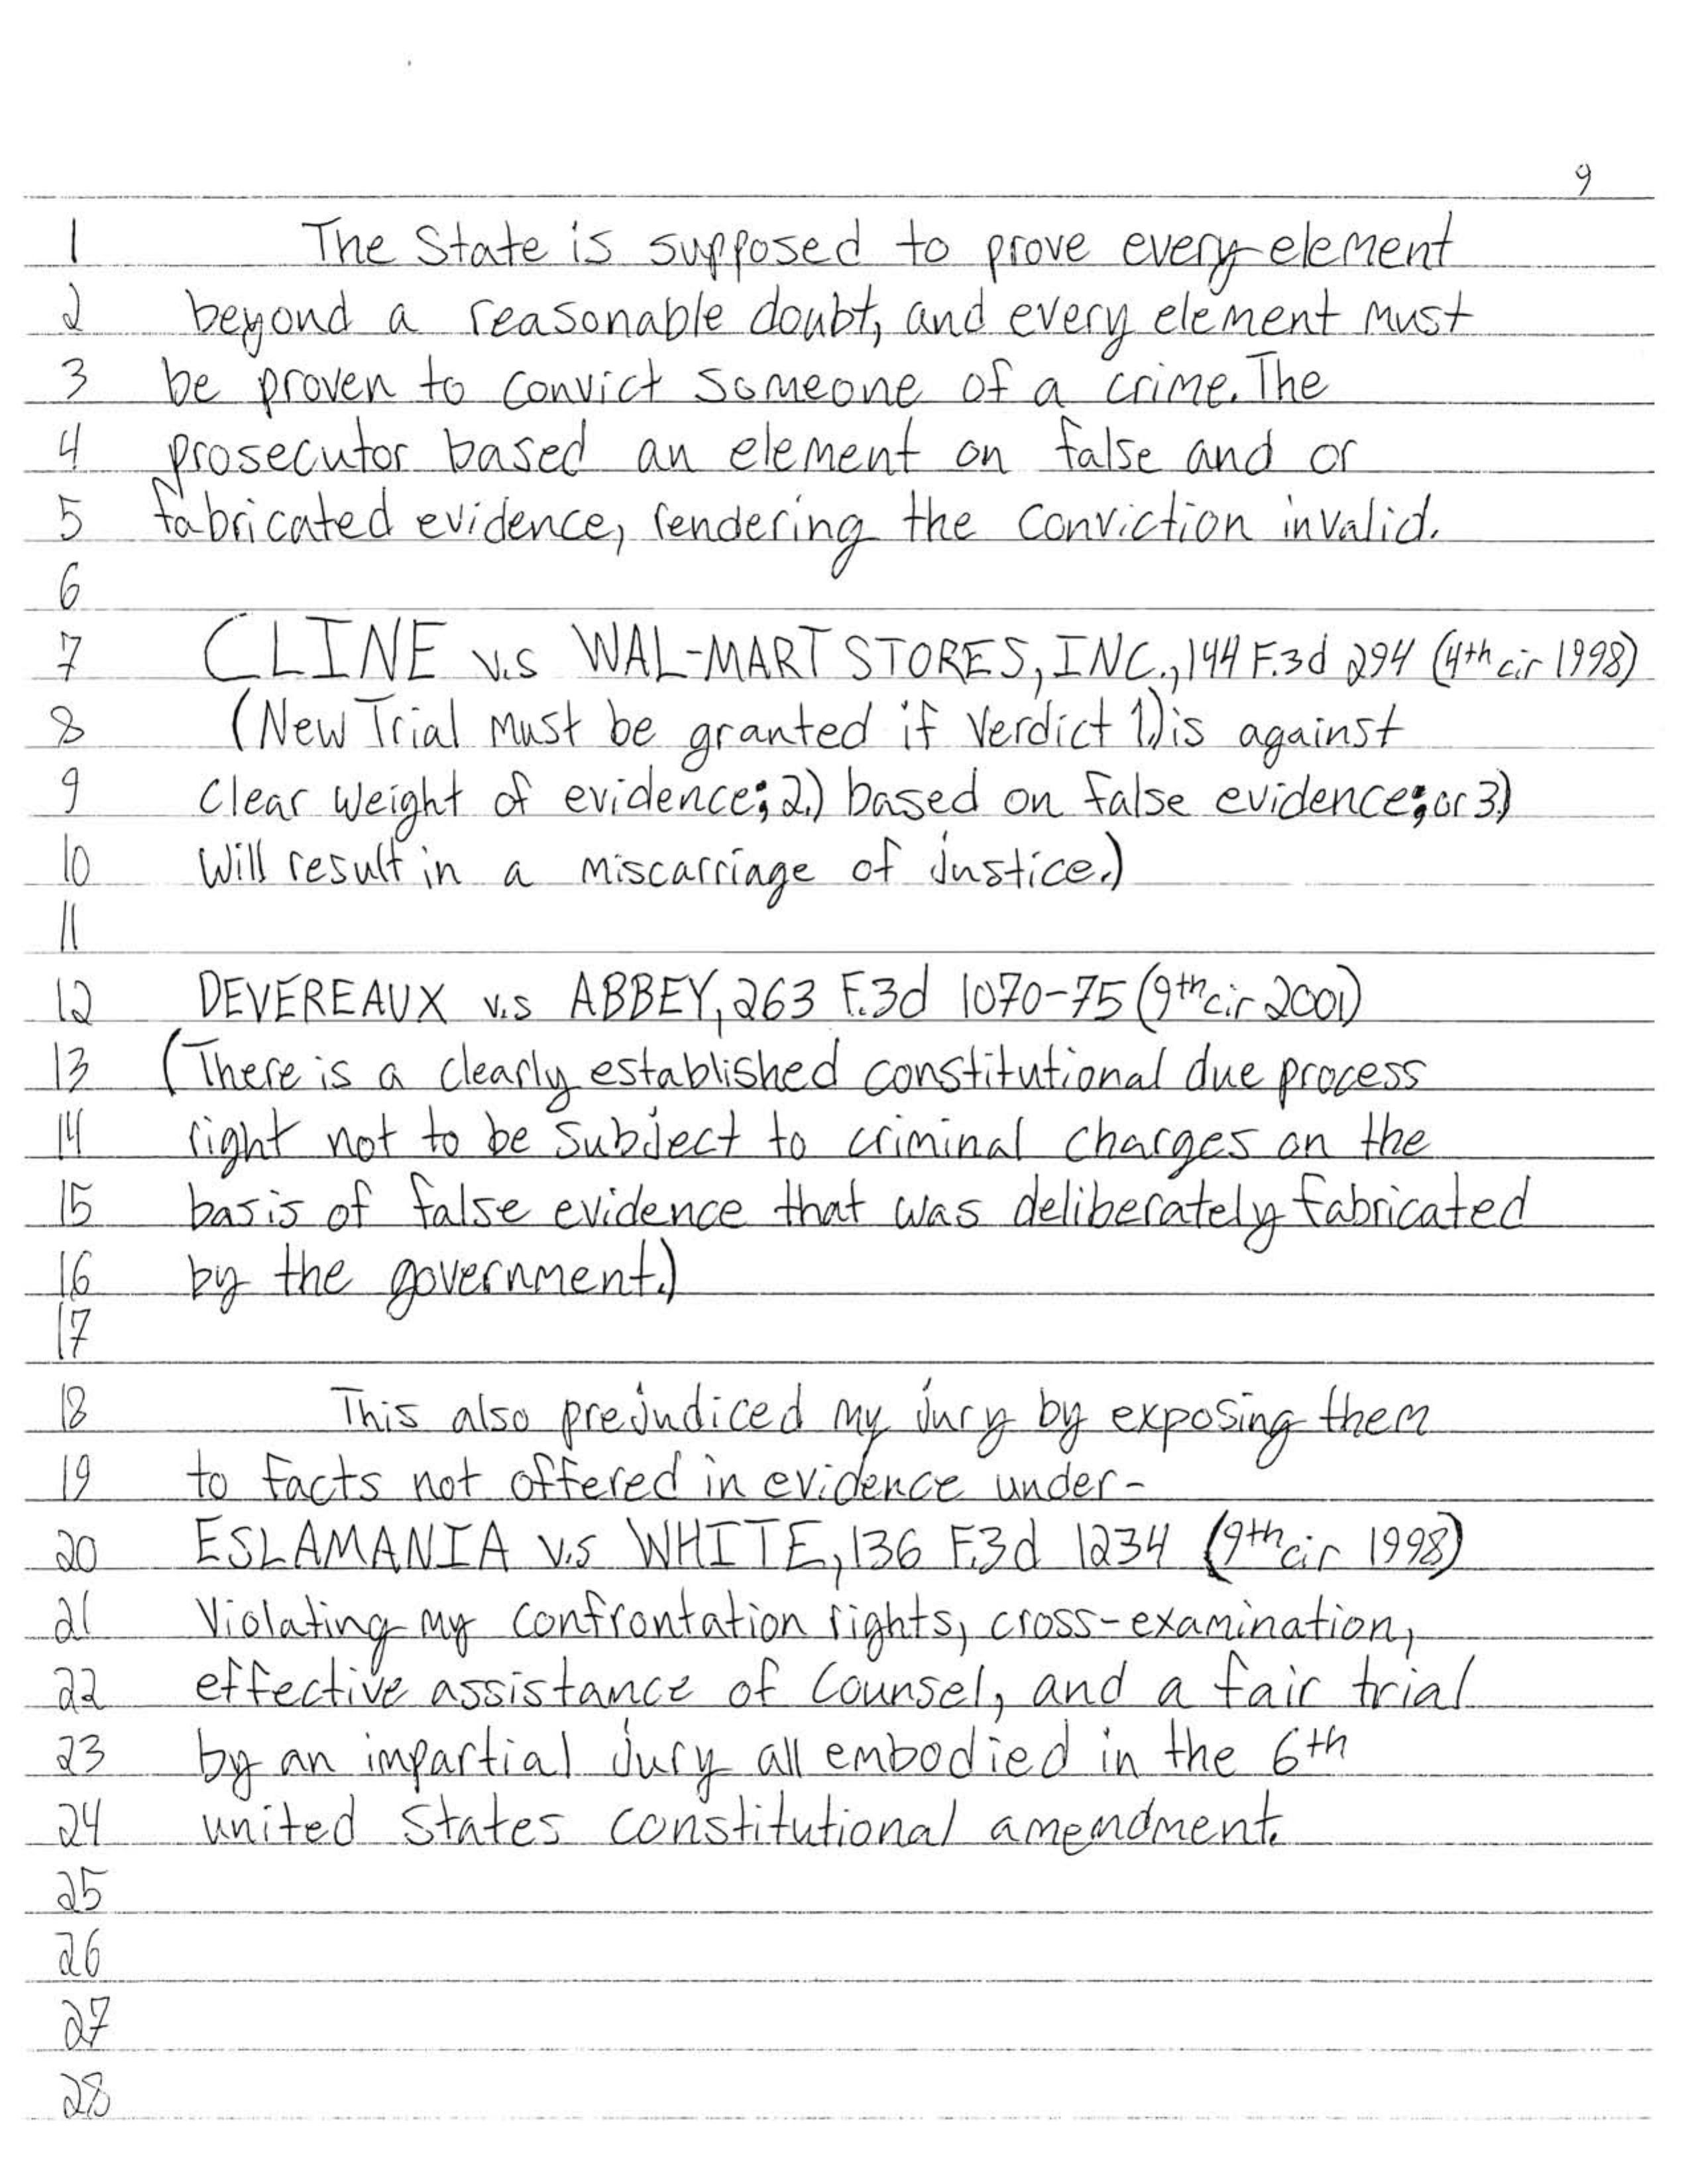 9
1 The State is supposed to prove every element
2 beyond a reasonable doubt, and every element must
3 be proven to convict someone of a crime. The
4 prosecutor based an element on false and or
5 fabricated evidence, rendering the conviction invalid.
6
7 CLINE v.s WAL-MART STORES, INC., 144 F.3d 294 (4th cir 1998)
8 (New Trial must be granted if verdict 1.) is against
9 clear weight of evidence; 2.) based on false evidence; or 3.)
10 will result in a miscarriage of justice.)
11
12 DEVEREAUX v.s ABBEY, 263 F.3d 1070-75 (9th cir 2001)
13 (There is a clearly established constitutional due process
14 right not to be subject to criminal charges on the
15 basis of false evidence that was deliberately fabricated
16 by the government.)
17
18 This also prejudiced my jury by exposing them
19 to facts not offered in evidence under-
20 ESLAMANIA v.s WHITE, 136 F.3d 1234 (9th cir 1998)
21 Violating my confrontation rights, cross-examination,
22 effective assistance of counsel, and a fair trial
23 by an impartial jury all embodied in the 6th
24 united States constitutional amendment.
25
26
27
28